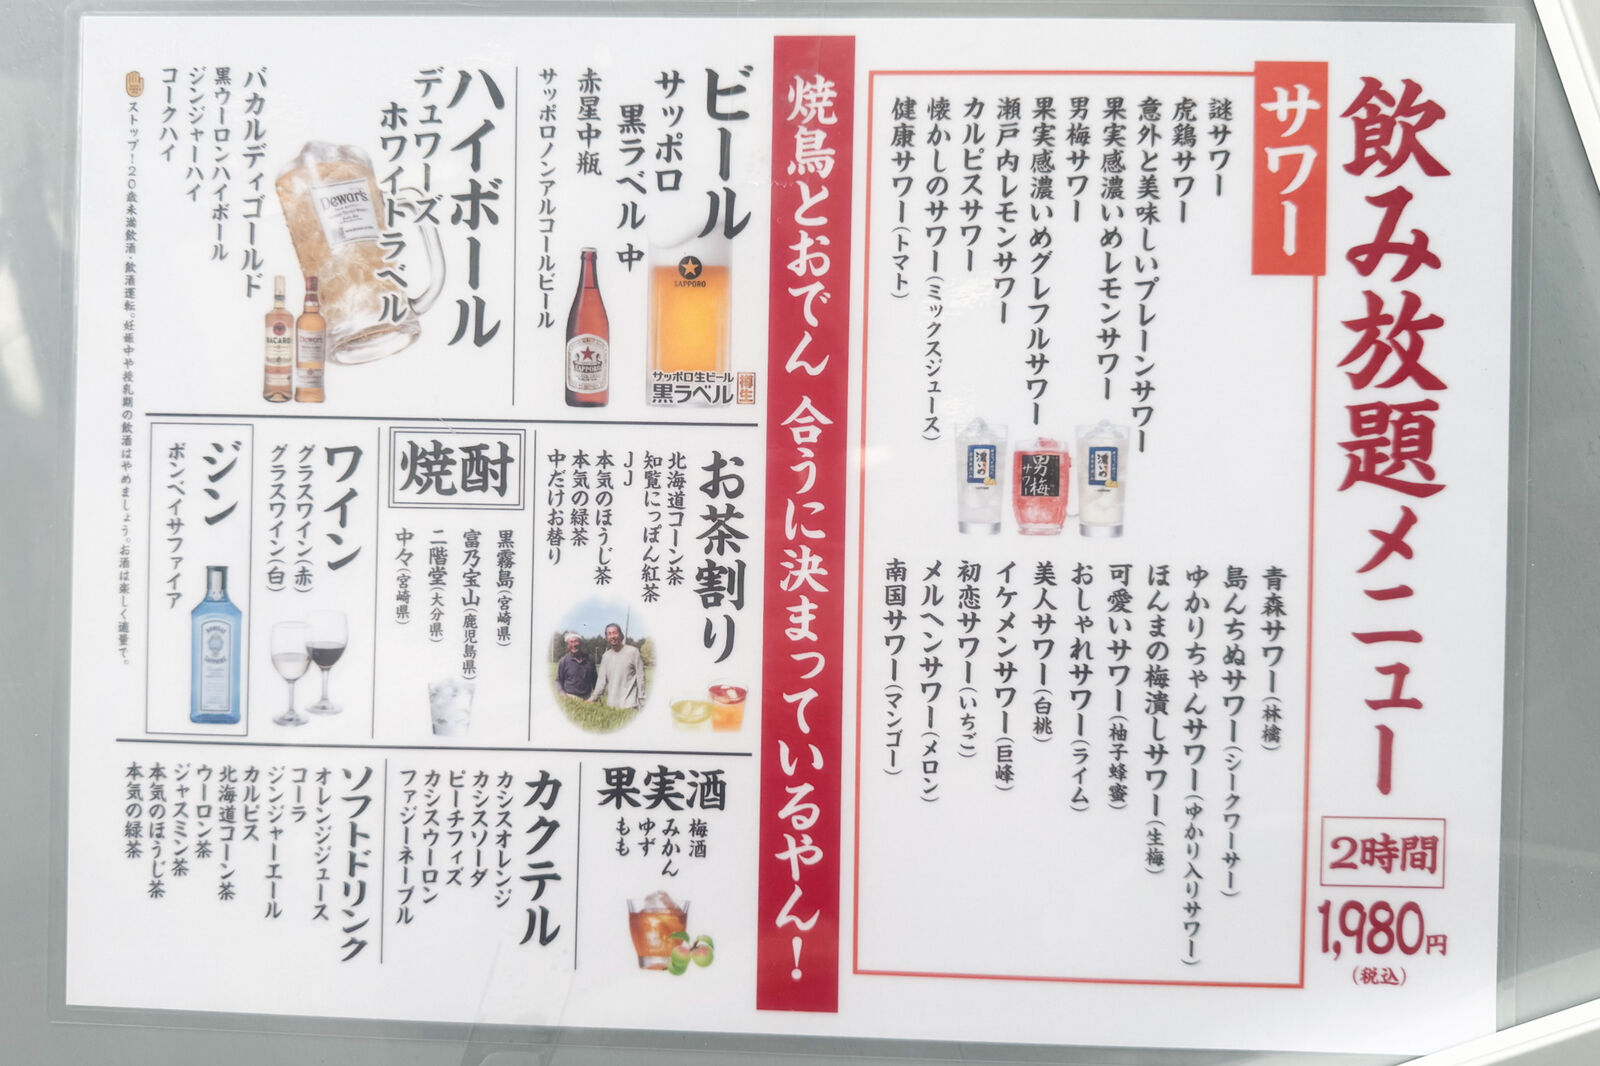 飲み放題メニュー
2時間
1,980円
(税込)
サワー
謎サワー
虎鶏サワー
意外と美味しいプレーンサワー
果実感濃いめレモンサワー
男梅サワー
果実感濃いめグレフルサワー
瀬戸内レモンサワー
カルピスサワー
懐かしのサワー(ミックスジュース)
健康サワー(トマト)
濃いめ
男梅
サワー
濃いめ
青森サワー(林檎)
島んちぬサワー(シークワーサー)
ゆかりちゃんサワー(ゆかり入りサワー)
ほんまの梅潰しサワー(生梅)
可愛いサワー(柚子蜂蜜)
おしゃれサワー(ライム)
美人サワー(白桃)
イケメンサワー(巨峰)
初恋サワー(いちご)
メルヘンサワー(メロン)
南国サワー(マンゴー)
焼鳥とおでん 合うに決まっているやん!
ビール
サッポロ
黒ラベル 中
赤星中瓶
サッポロノンアルコールビール
SAPPORO
サッポロ生ビール
黒ラベル
樽生
SAPPORO
ハイボール
デュワーズ
ホワイトラベル
バカルディゴールド
黒ウーロンハイボール
ジンジャーハイ
コークハイ
Dewar's
BACARDI
Dewar's
お茶割り
北海道コーン茶
知覧にっぽん紅茶
JJ
本気のほうじ茶
本気の緑茶
中だけお替り
焼酎
黒霧島(宮崎県)
富乃宝山(鹿児島県)
二階堂(大分県)
中々(宮崎県)
ワイン
グラスワイン(赤)
グラスワイン(白)
ジン
ボンベイサファイア
果実酒
梅酒
みかん
ゆず
もも
カクテル
カシスオレンジ
カシスソーダ
ピーチフィズ
カシスウーロン
ファジーネーブル
ソフトドリンク
オレンジジュース
コーラ
ジンジャーエール
カルピス
北海道コーン茶
ウーロン茶
ジャスミン茶
本気のほうじ茶
本気の緑茶
ストップ!20歳未満飲酒・飲酒運転。妊娠中や授乳期の飲酒はやめましょう。お酒は楽しく適量で。